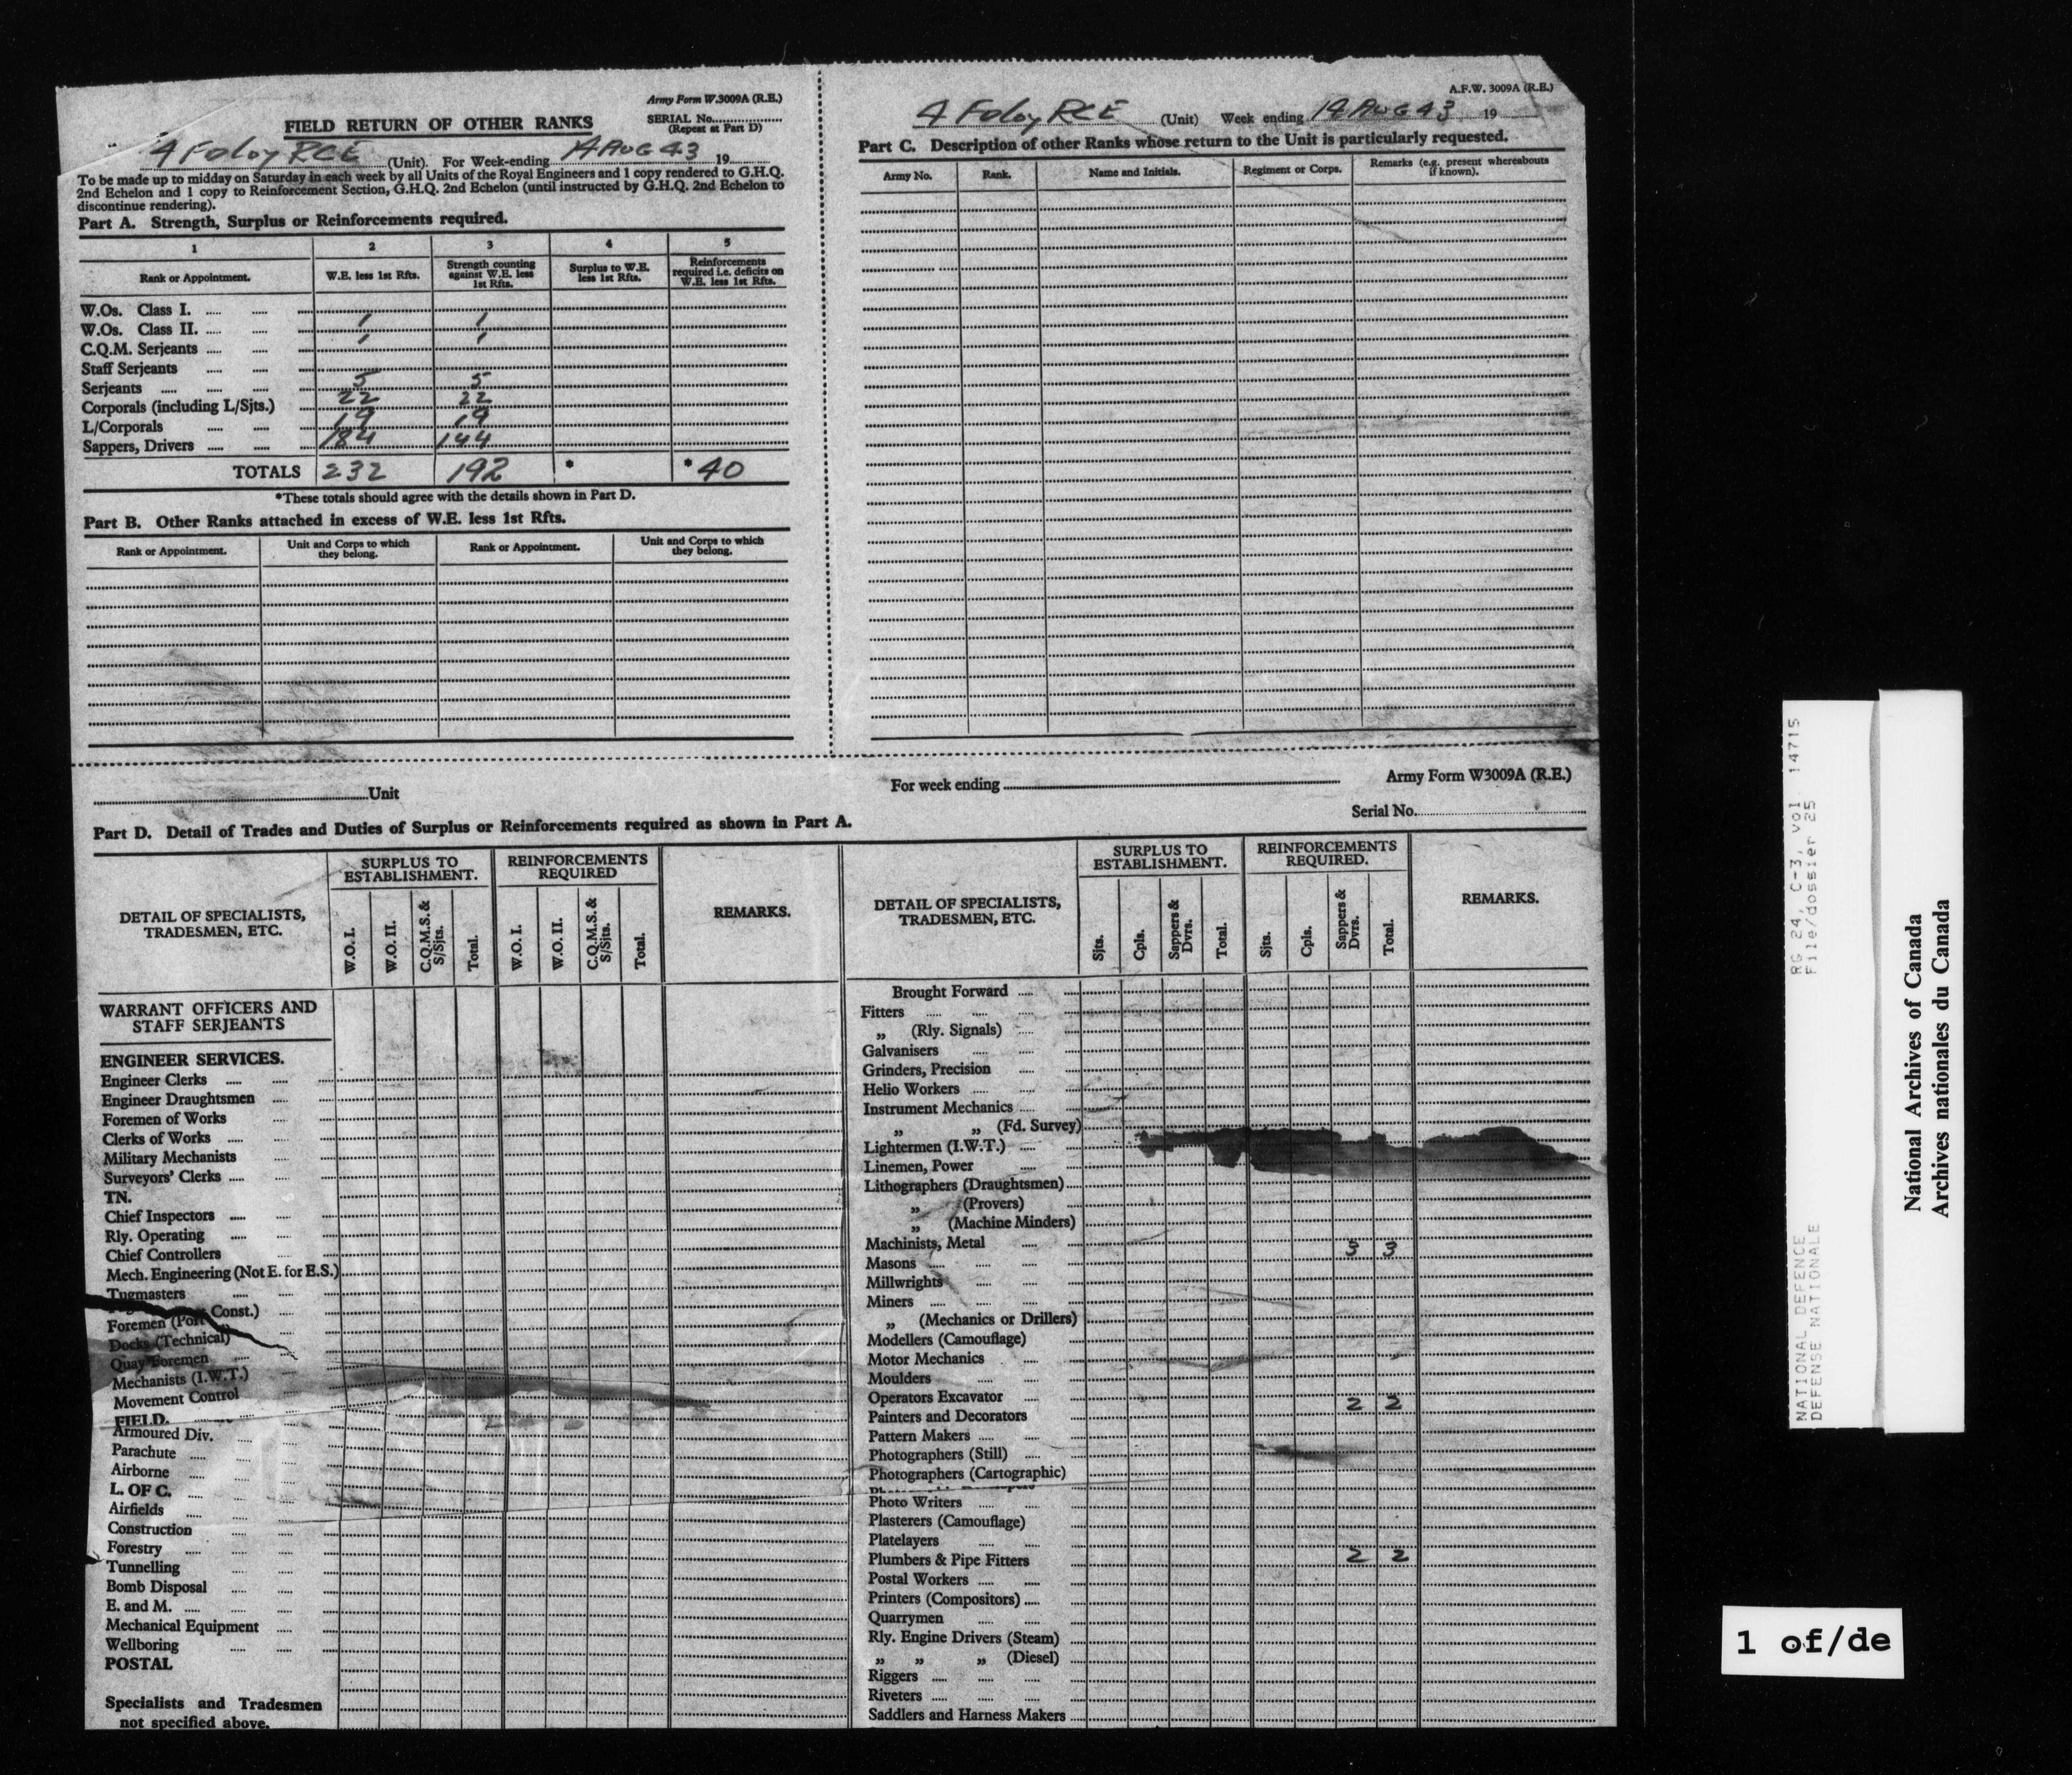 Army Form W.3009A (R.E.)
FIELD RETURN OF OTHER RANKS
SERIAL No.
(Repeat at Part D)
4 Fd Coy RCE (Unit). For Week-ending 14 AUG 43 19
To be made up to midday on Saturday in each week by all Units of the Royal Engineers and 1 copy rendered to G.H.Q.
2nd Echelon and 1 copy to Reinforcement Section, G.H.Q. 2nd Echelon (until instructed by G.H.Q. 2nd Echelon to
discontinue rendering).
Part A. Strength, Surplus or Reinforcements required.
1 2 3 4 5
Rank or Appointment. W.E. less 1st Rfts. Strength counting against W.E. less 1st Rfts. Surplus to W.E. less 1st Rfts. Reinforcements required i.e. deficits on W.E. less 1st Rfts.
W.Os. Class I.
W.Os. Class II. 1 1
C.Q.M. Serjeants 1 1
Staff Serjeants
Serjeants 5 5
Corporals (including L/Sjts.) 22 22
L/Corporals 19 19
Sappers, Drivers 184 144
TOTALS 232 192 * *40
*These totals should agree with the details shown in Part D.
Part B. Other Ranks attached in excess of W.E. less 1st Rfts.
Rank or Appointment. Unit and Corps to which they belong. Rank or Appointment. Unit and Corps to which they belong.
A.F.W. 3009A (R.E.)
4 Fd Coy RCE (Unit) Week ending 14 AUG 43 19
Part C. Description of other Ranks whose return to the Unit is particularly requested.
Army No. Rank. Name and Initials. Regiment or Corps. Remarks (e.g. present whereabouts if known).
Unit For week ending Army Form W3009A (R.E.)
Serial No.
Part D. Detail of Trades and Duties of Surplus or Reinforcements required as shown in Part A.
DETAIL OF SPECIALISTS, TRADESMEN, ETC. SURPLUS TO ESTABLISHMENT. REINFORCEMENTS REQUIRED REMARKS.
W.O. I. W.O. II. C.Q.M.S. & S/Sjts. Total. W.O. I. W.O. II. C.Q.M.S. & S/Sjts. Total.
WARRANT OFFICERS AND
STAFF SERJEANTS
ENGINEER SERVICES.
Engineer Clerks
Engineer Draughtsmen
Foremen of Works
Clerks of Works
Military Mechanists
Surveyors' Clerks
TN.
Chief Inspectors
Rly. Operating
Chief Controllers
Mech. Engineering (Not E. for E.S.)
Tugmasters
Foremen (Port Const.)
Docks (Technical)
Quay Foremen
Mechanists (I.W.T.)
Movement Control
FIELD.
Armoured Div.
Parachute
Airborne
L. OF C.
Airfields
Construction
Forestry
Tunnelling
Bomb Disposal
E. and M.
Mechanical Equipment
Wellboring
POSTAL
Specialists and Tradesmen
not specified above.
DETAIL OF SPECIALISTS, TRADESMEN, ETC. SURPLUS TO ESTABLISHMENT. REINFORCEMENTS REQUIRED. REMARKS.
Sjts. Cpls. Sappers & Dvrs. Total. Sjts. Cpls. Sappers & Dvrs. Total.
Brought Forward
Fitters
„ (Rly. Signals)
Galvanisers
Grinders, Precision
Helio Workers
Instrument Mechanics
„ „ (Fd. Survey)
Lightermen (I.W.T.)
Linemen, Power
Lithographers (Draughtsmen)
„ (Provers)
„ (Machine Minders)
Machinists, Metal
Masons 3 3
Millwrights
Miners
„ (Mechanics or Drillers)
Modellers (Camouflage)
Motor Mechanics
Moulders
Operators Excavator
Painters and Decorators 2 2
Pattern Makers
Photographers (Still)
Photographers (Cartographic)
Photo Writers
Plasterers (Camouflage)
Platelayers
Plumbers & Pipe Fitters 2 2
Postal Workers
Printers (Compositors)
Quarrymen
Rly. Engine Drivers (Steam)
„ „ „ (Diesel)
Riggers
Riveters
Saddlers and Harness Makers
NATIONAL DEFENCE RG 24, C-3, Vol 14715
DEFENSE NATIONALE File/dossier 25
National Archives of Canada
Archives nationales du Canada
1 of/de